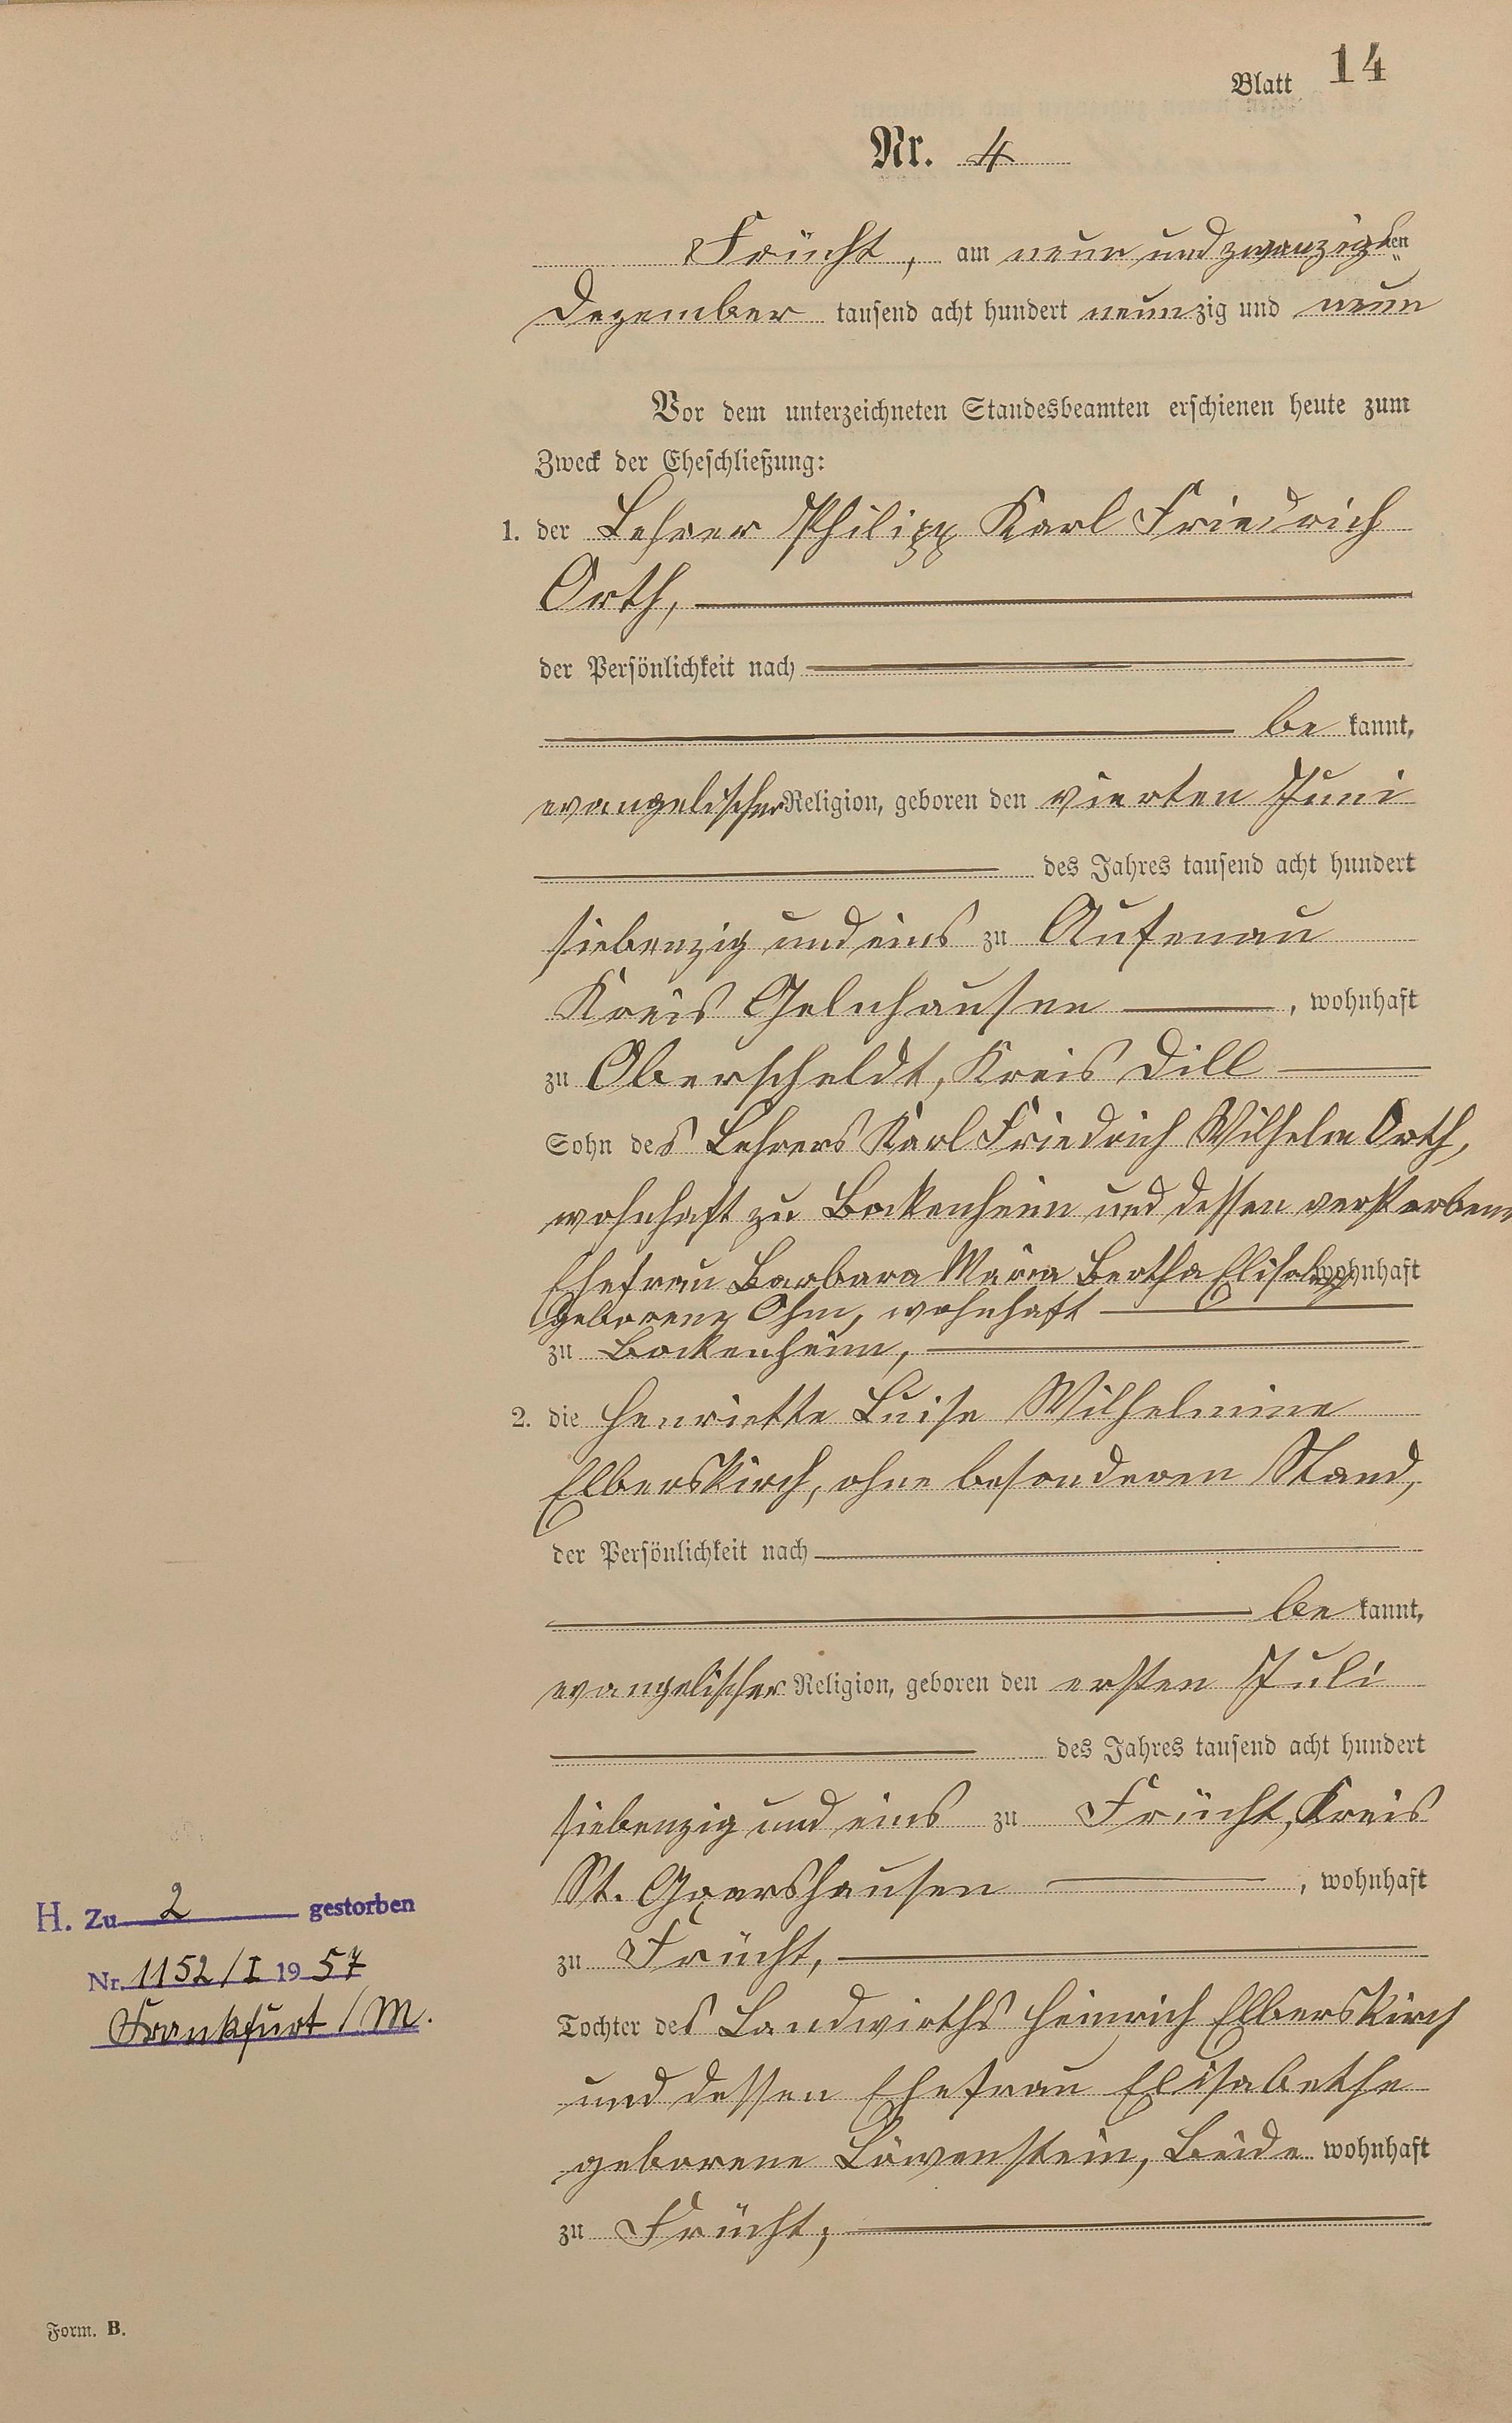 Blatt 14
Nr. 4
Frücht, am neun und zwanzigsten
Dezember tausend acht hundert neunzig und neun
Vor dem unterzeichneten Standesbeamten erschienen heute zum
Zweck der Eheschließung:
1. der Lehrer Philipp Karl Friedrich
Orth,
der Persönlichkeit nach
be kannt,
evangelischer Religion, geboren den vierten Juni
des Jahres tausend acht hundert
siebenzig und eins zu Aufenau
Kreis Gelnhausen, wohnhaft
zu Oberscheldt, Kreis Dill
Sohn des Lehrers Karl Friedrich Wilhelm Orth,
wohnhaft zu Bockenheim und dessen verstorbene
Ehefrau Barbara Maria Bertha wohnhaft
geborene Ohm, wohnhaft
zu Bockenheim,
2. die Henriette Luise Wilhelmine
Elberskirch, ohne besonderen Stand,
der Persönlichkeit nach
be kannt,
evangelischer Religion, geboren den ersten Juli
des Jahres tausend acht hundert
siebenzig und eins zu Frücht, Kreis
St. Goarshausen, wohnhaft
zu Frücht,
Tochter des Landwirths Heinrich Elberskirch
und dessen Ehefrau Elisabethe
geborene Löwenstein, beide wohnhaft
zu Frücht,
H. Zu 2 gestorben
Nr. 1152/I 1957
Frankfurt/M.
Form. B.